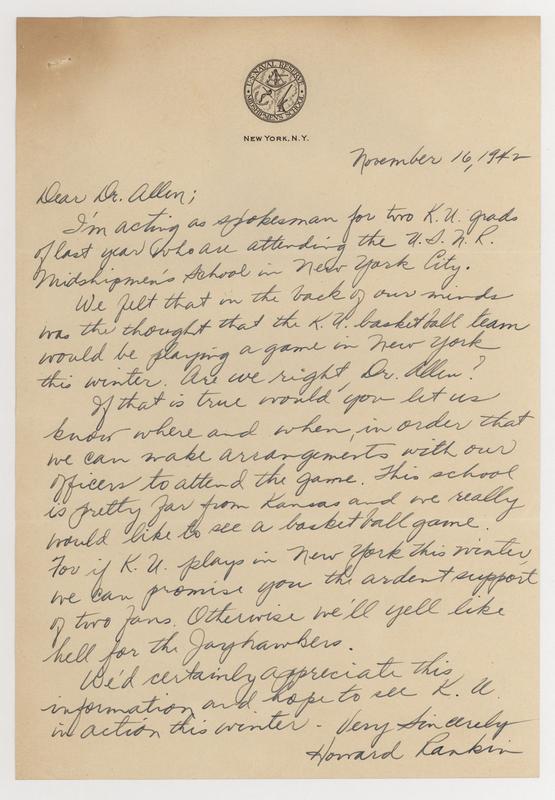 U.S. NAVAL RESERVE
MIDSHIPMEN'S SCHOOL
NEW YORK, N.Y.
November 16, 1942
Dear Dr. Allen;
I'm acting as spokesman for two K.U. grads
of last year who are attending the U.S.N.R.
Midshipmen's School in New York City.
We felt that in the back of our minds
was the thought that the K.U. basketball team
would be playing a game in New York
this winter. Are we right, Dr. Allen?
If that is true would you let us
know where and when, in order that
we can make arrangements with our
officers to attend the game. This school
is pretty far from Kansas and we really
would like to see a basketball game.
For if K.U. plays in New York this winter,
we can promise you the ardent support
of two fans. Otherwise we'll yell like
hell for the Jayhawkers.
We'd certainly appreciate this
information and hope to see K.U.
in action this winter. Very Sincerely
Howard Rankin